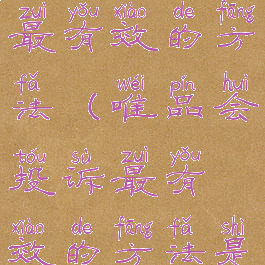 zuì yǒu xiào de fāng
最有效的方
fǎ wéi pǐn huì
法（唯品会
tóu sù zuì yǒu
投诉最有
xiào de fāng fǎ shì
效的方法是